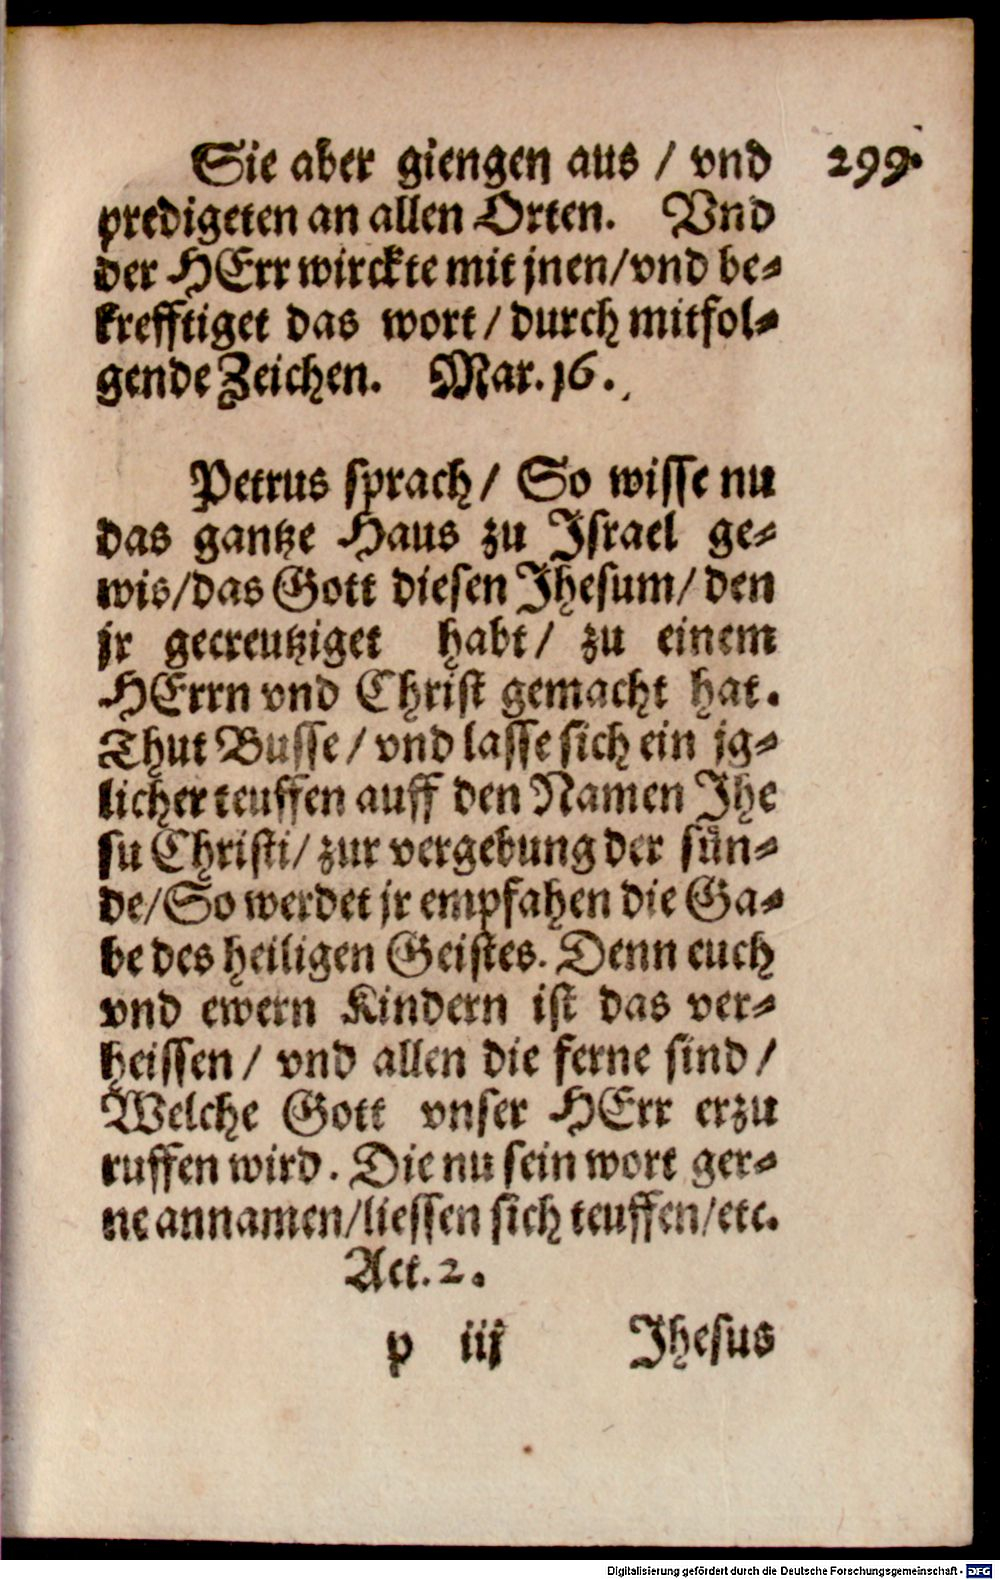 Sie aber giengen aus / vnd 299.
predigeten an allen Orten. Vnd
der HErr wirckte mit jnen/vnd be⸗
krefftiget das wort / durch mitfol⸗
gende Zeichen. Mar. 16.
Petrus sprach/ So wisse nu
das gantze Haus zu Israel ge⸗
wis/das Gott diesen Jhesum/ den
jr gecreutziget habt/ zu einem
HErrn vnd Christ gemacht hat.
Thut Busse / vnd lasse sich ein jg⸗
licher teuffen auff den Namen Jhe
su Christi/ zur vergebung der sün⸗
de/So werdet jr empfahen die Ga⸗
be des heiligen Geistes. Denn euch
vnd ewern Kindern ist das ver⸗
heissen / vnd allen die ferne sind /
Welche Gott vnser HErr erzu
ruffen wird. Die nu sein wort ger⸗
ne annamen/liessen sich teuffen/etc.
Act. 2.
p iij Jhesus
Digitalisierung gefördert durch die Deutsche Forschungsgemeinschaft - DFG